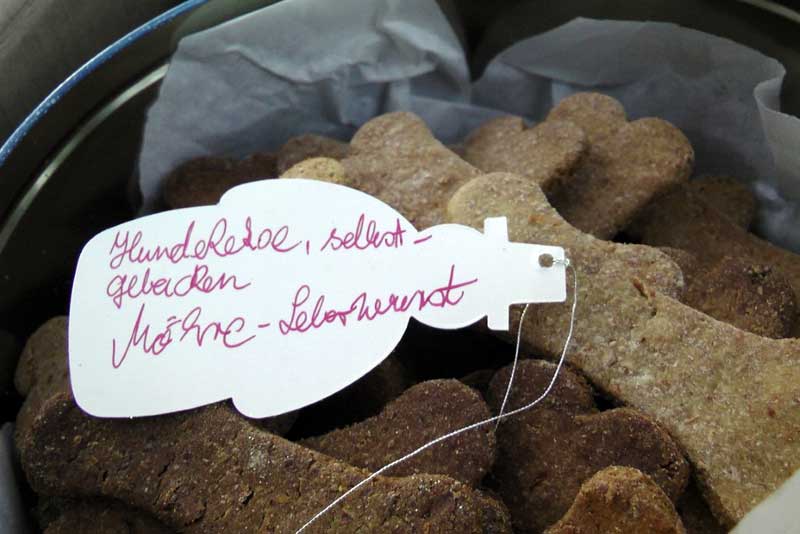 Hundekekse, selbst-
gebacken
Möhre-Leberwurst